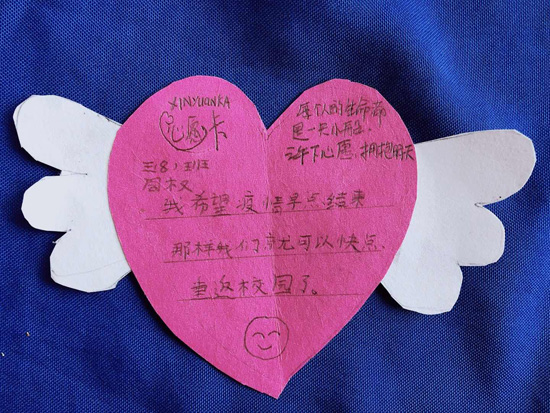 XINYUANKA
心愿卡
三8，班
每个人的生命都
是一天小
许下心愿，拥抱明天
我希望疫情早点结束
那样我们就可以快点
重返校园了。